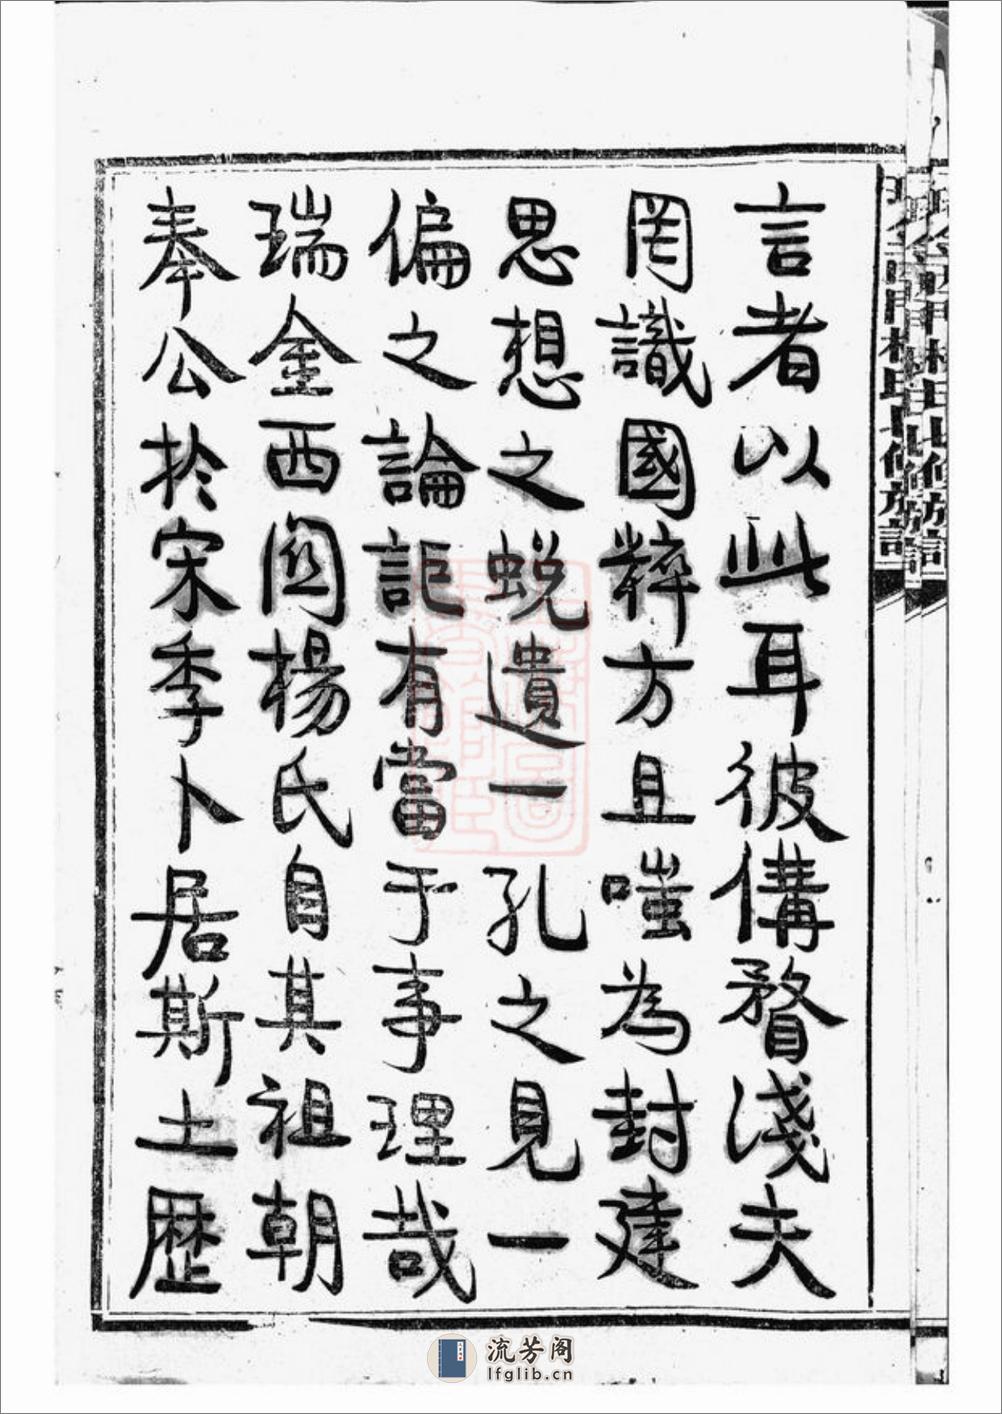 言者以此耳彼傋瞀淺夫
罔識國粹方且嗤為封建
思想之蛻遺一孔之見一
偏之論詎有當于事理哉
瑞金西關楊氏自其祖朝
奉公於宋季卜居斯土歷
流芳阁
lfglib.cn